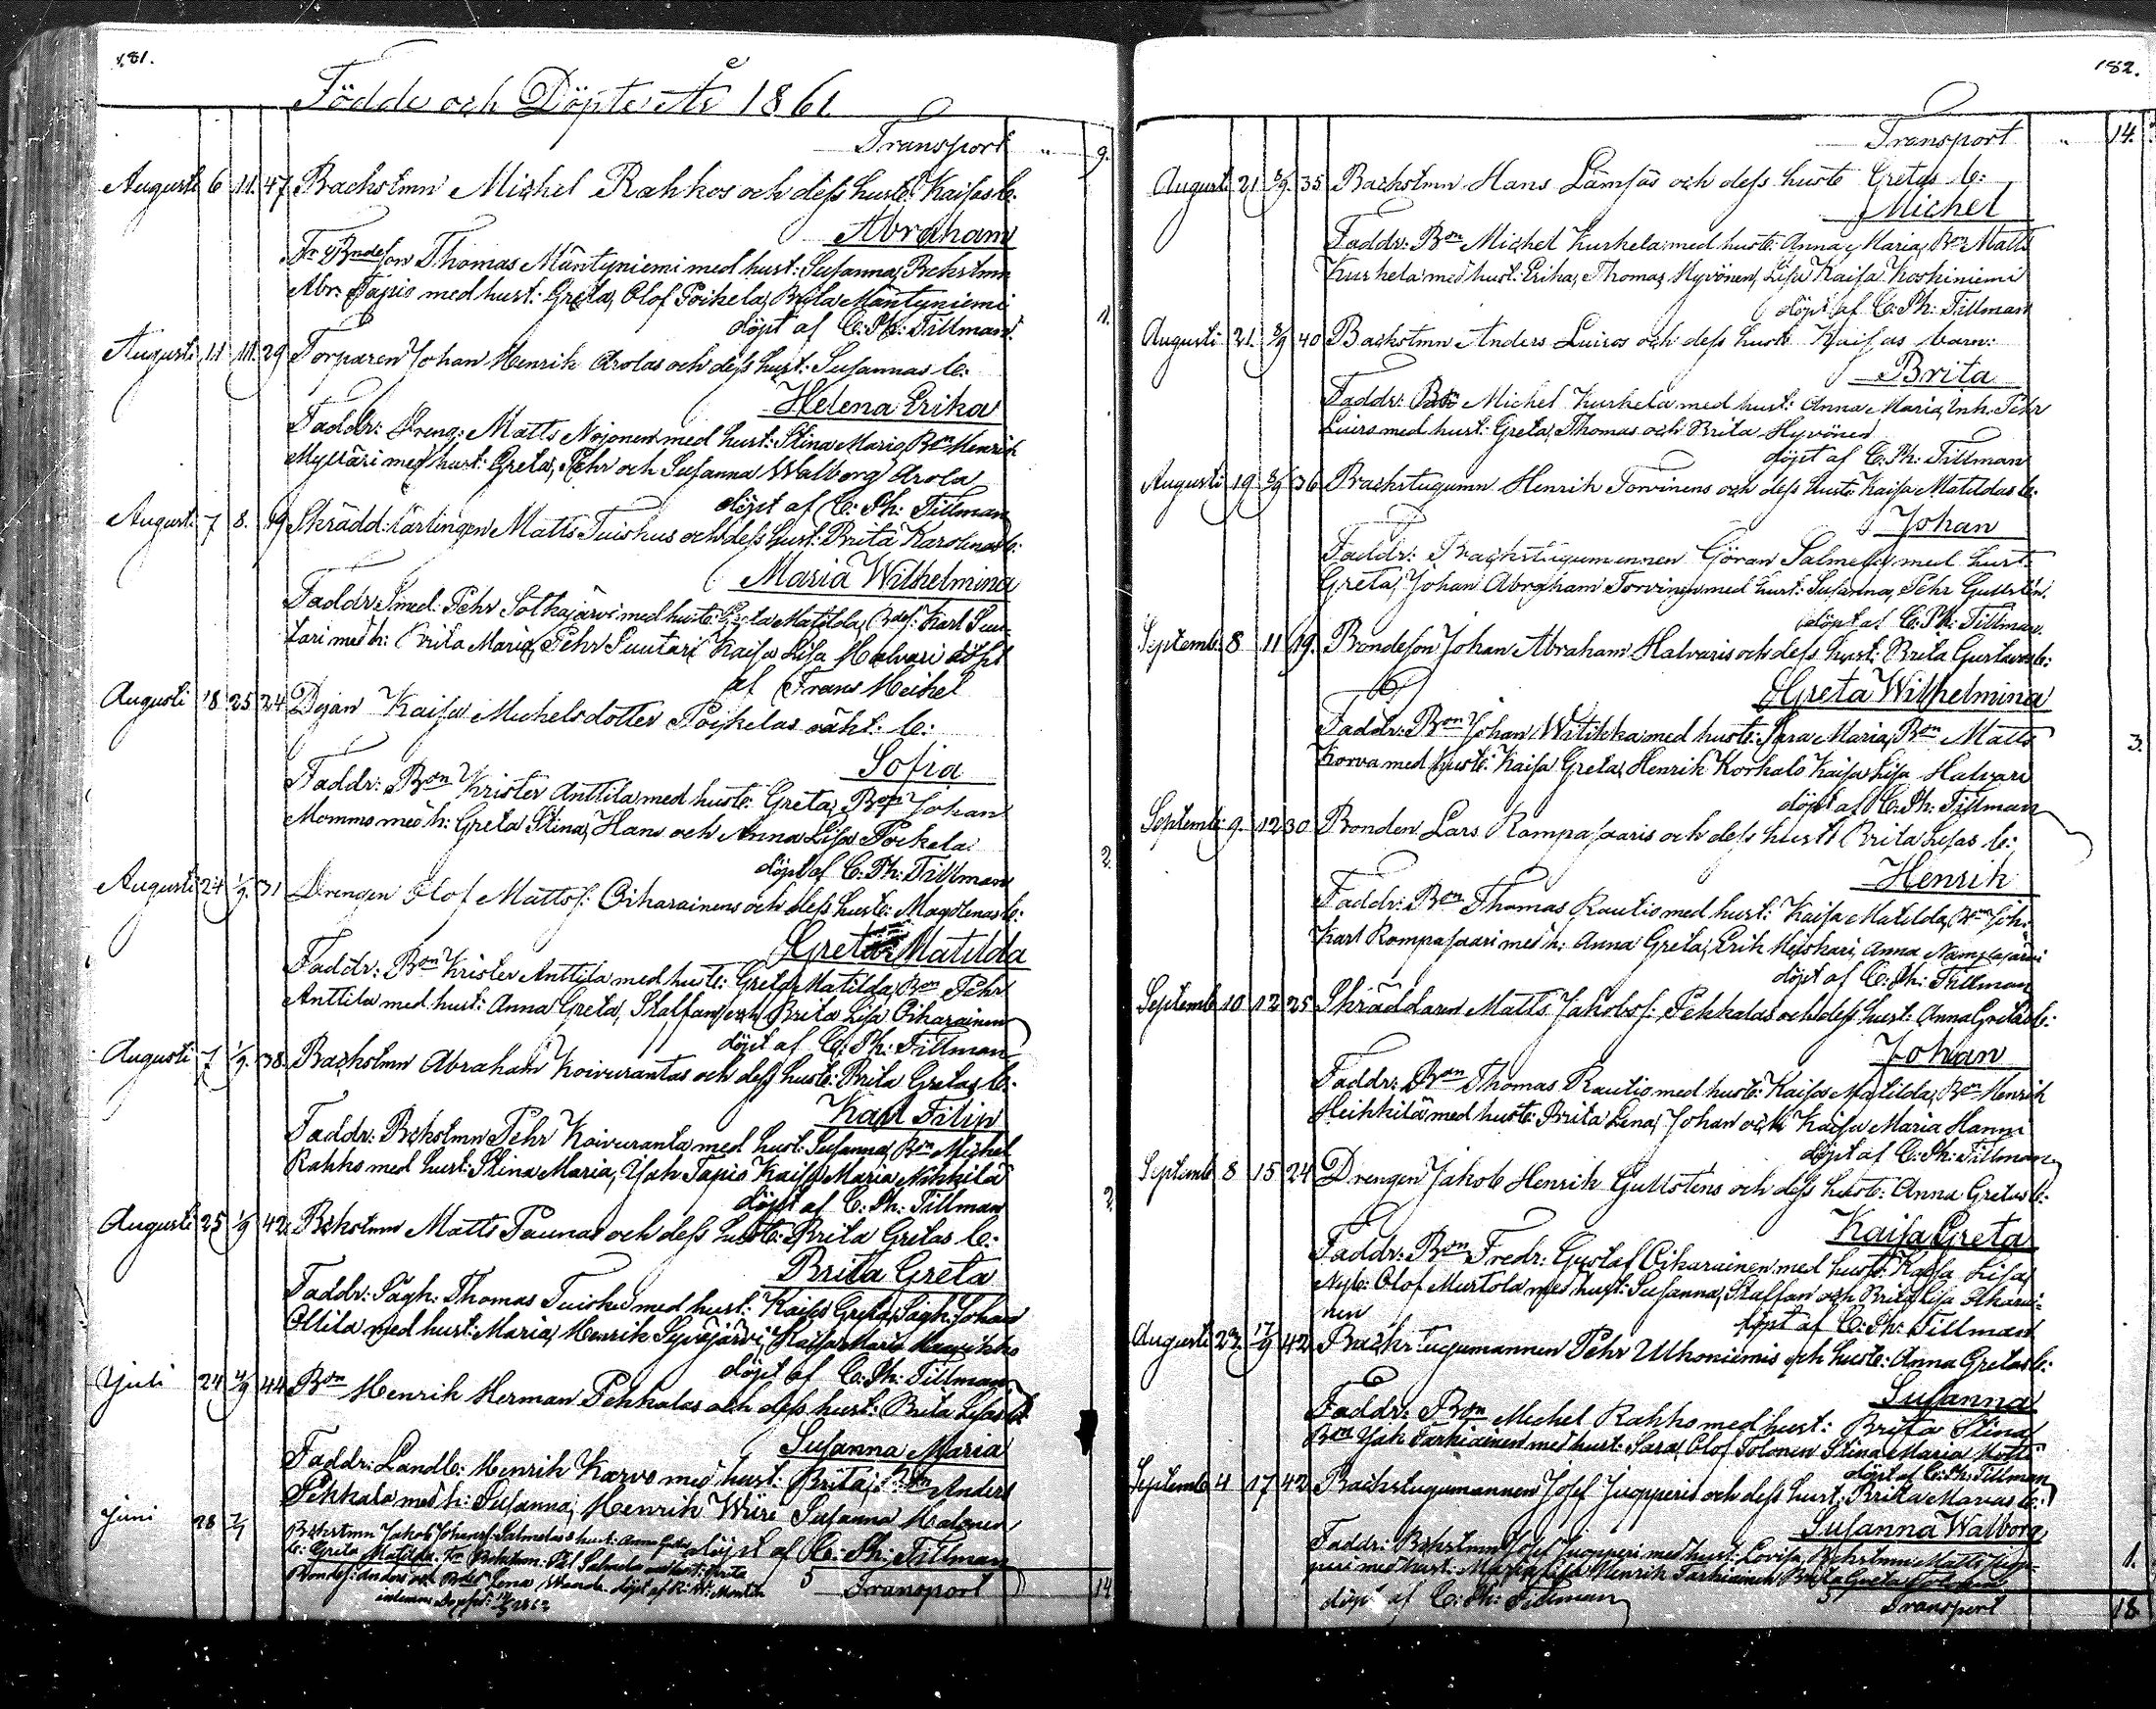 181.
Födde och Döpte År 1861.
Transport " 9.
Augusti 6 11. 47 Backstmn Michel Rahkos och dess hust: Kaisas b:
Abraham
Fr: Bndeson Thomas Mäntyniemi med hust: Susanna, Bckstmn
Abr: Tapio med hust: Greta, Olof Poikela, Brita Mäntyniemi
döpt af C: Ph: Tillman. 11.
Augusti 11 11. 29 Torparen Johan Henrik Arolas och dess hust: Susannas b:
Helena Erika
Faddr: Dreng: Matts Nojonen med hust: Stina Maria, Bon Henrik
Mylläri med hust: Greta, Pehr och Susanna Walborg Arola
döpt af C: Ph: Tillman
August. 7 8. 19 Skrädd: lärlingen Matts Tuiskus och dess hust: Brita Karolinas b:
Maria Wilhelmina
Faddr: Smed: Pehr Sotkajärvi med hust: Greta Matilda, Bdes: Karl Suu-
tari med h: Brita Maria, Pehr Suutari Kaisa Lisa Halvari döpt
af Frans Heikel
Augusti 18 25 24 Pigan Kaisa Michelsdotter Poikelas oäkt: b:
Sofia
Faddr: Bon Krister Anttila med hust: Greta, Bon Johan
Mommo med h: Greta Stina, Hans och Anna Lisa Poikela
döpt af C: Ph: Tillman 2.
Augusti 24 1/9. 31 Drengen Olof Mattss: Oikarainens och dess hust: Magdlenas b:
Greta Matilda
Faddr: Bon Krister Anttila med hust: Greta Matilda, Bon Pehr
Anttila med hust: Anna Greta, Staffan och Brita Lisa Oikarainen
döpt af C: Ph: Tillman
Augusti 7 1/9. 38. Backstmn Abraham Koivurantas och dess hust: Brita Gretas b:
Karl Filip
Faddr: Bckstmn Pehr Koivuranta med hust: Susanna, Bon Michel
Rahko med hust: Stina Maria, Jak Tapio Kaisa Maria Nikkilä
döpt af C: Ph: Tillman 2.
Augusti 25 1/9 42. Bckstmn Matts Paunas och dess hust: Brita Gretas b:
Brita Greta
Faddr: Sågh: Thomas Tuisku med hust: Kaisa Greta, Sågh: Johan
Ollila med hust: Maria, Henrik Syväjärvi, Kaisa Maria
döpt af C: Ph: Tillman
Juli 24 4/9 44 Bon Henrik Herman Pekkalas och dess hust: Brita Lisas b:
Susanna Maria
Faddr: Landb: Henrik Karvo med hust: Brita, Bon Anders
Pekkala med h: Susanna, Henrik Wiiri Susanna Halonen
döpt af C: Ph: Tillman
Juni 28 7/7 Bckstmn Jakob Johanss: Salmelas hust: Anna Gretas
b: Greta Matilda. Fr: Salmela med hust: Brita
Bondes: Anders och Lena
5 Transport 14
182.
Transport " 14.
August 21 8/9 35 Backstmn Hans Lämsäs och dess hust Gretas b:
Michel
Faddr: Bon Michel Kurkela med hust: Anna Maria, Bon Matts
Kurkela med hust: Erika, Thomas Hyvönen, Lisa Kaisa Koskiniemi
döpt af C: Ph: Tillman
Augusti 21. 8/9 40 Backstmn Anders Luiros och dess hust Kaisas barn:
Brita
Faddr: Bon Michel Kurkela med hust: Anna Maria, Inh. Pehr
Luiro med hust: Greta, Thomas och Brita Hyvönen
döpt af C. Ph: Tillman
Augusti 19 8/9 36 Backstugumn Henrik Torvinens och dess hust: Kaisa Matildas b:
Johan
Faddr: Backstugumannen Göran Salmela med hust:
Greta, Johan Abraham Torvinen med hust: Susanna, Pehr Gullstén.
döpt af C. Ph: Tillman.
Septemb: 8 11 19. Bondeson Johan Abraham Halvaris och dess hust: Brita Gustavas b:
Greta Wilhelmina
Faddr: Bon Johan Witikka med hust: Sara Maria, Bon Matts 3.
Korva med hust: Kaisa Greta, Henrik Korkalo Kaisa Lisa Halvari
döpt af C. Ph: Tillman
Septemb: 9. 12 30 Bonden Lars Rompasaaris och dess hust: Brita Lisas b:
Henrik
Faddr: Bon Thomas Rautio med hust: Kaisa Matilda, Bon Joh:
Karl Rompasaari med h: Anna Greta, Erik Heiskari, Anna Nampajärvi
döpt af C: Ph: Tillman
Septemb 10 12 25 Skräddaren Matts Jakobss: Pekkalas och dess hust: Anna Gretas b:
Johan
Faddr: Bon Thomas Rautio med hust: Kaisa Matilda, Bon Henrik
Heikkilä med hust: Brita Lena, Johan och Kaisa Maria Hanni
döpt af C: Ph: Tillman
Septemb 8 15 24 Drengen Jakob Henrik Gullsténs och dess hust: Anna Gretas b:
Kaisa Greta
Faddr: Bon Fredr: Gustaf Oikarainen med hust: Kaisa Lisa,
Nyb: Olof Murtola med hust: Susanna, Staffan och Brita Lisa Oikarai-
nen döpt af C: Ph: Tillman
Augusti 23. 17/9 42 Backstugumannen Pehr Ulkoniemis och hust: Anna Gretas b:
Susanna
Faddr: Bon Michel Rahko med hust: Brita Stina,
Bon Jak Tarkiainen med hust: Sara, Olof Tolonen Stina Maria
döpt af C: Ph: Tillman
Septemb 4 17 42 Backstugumannen Josef Juopperis och dess hust: Brita Marias b:
Susanna Walborg
Faddr: Bckstmn Josef Juopperi med hust: Lovisa, Bckstmn Matts Juop- 1.
peri med hust: Maria Lisa Henrik Tarkiainen Brita Greta
döpt af C: Ph: Tillman 5 Transport 18